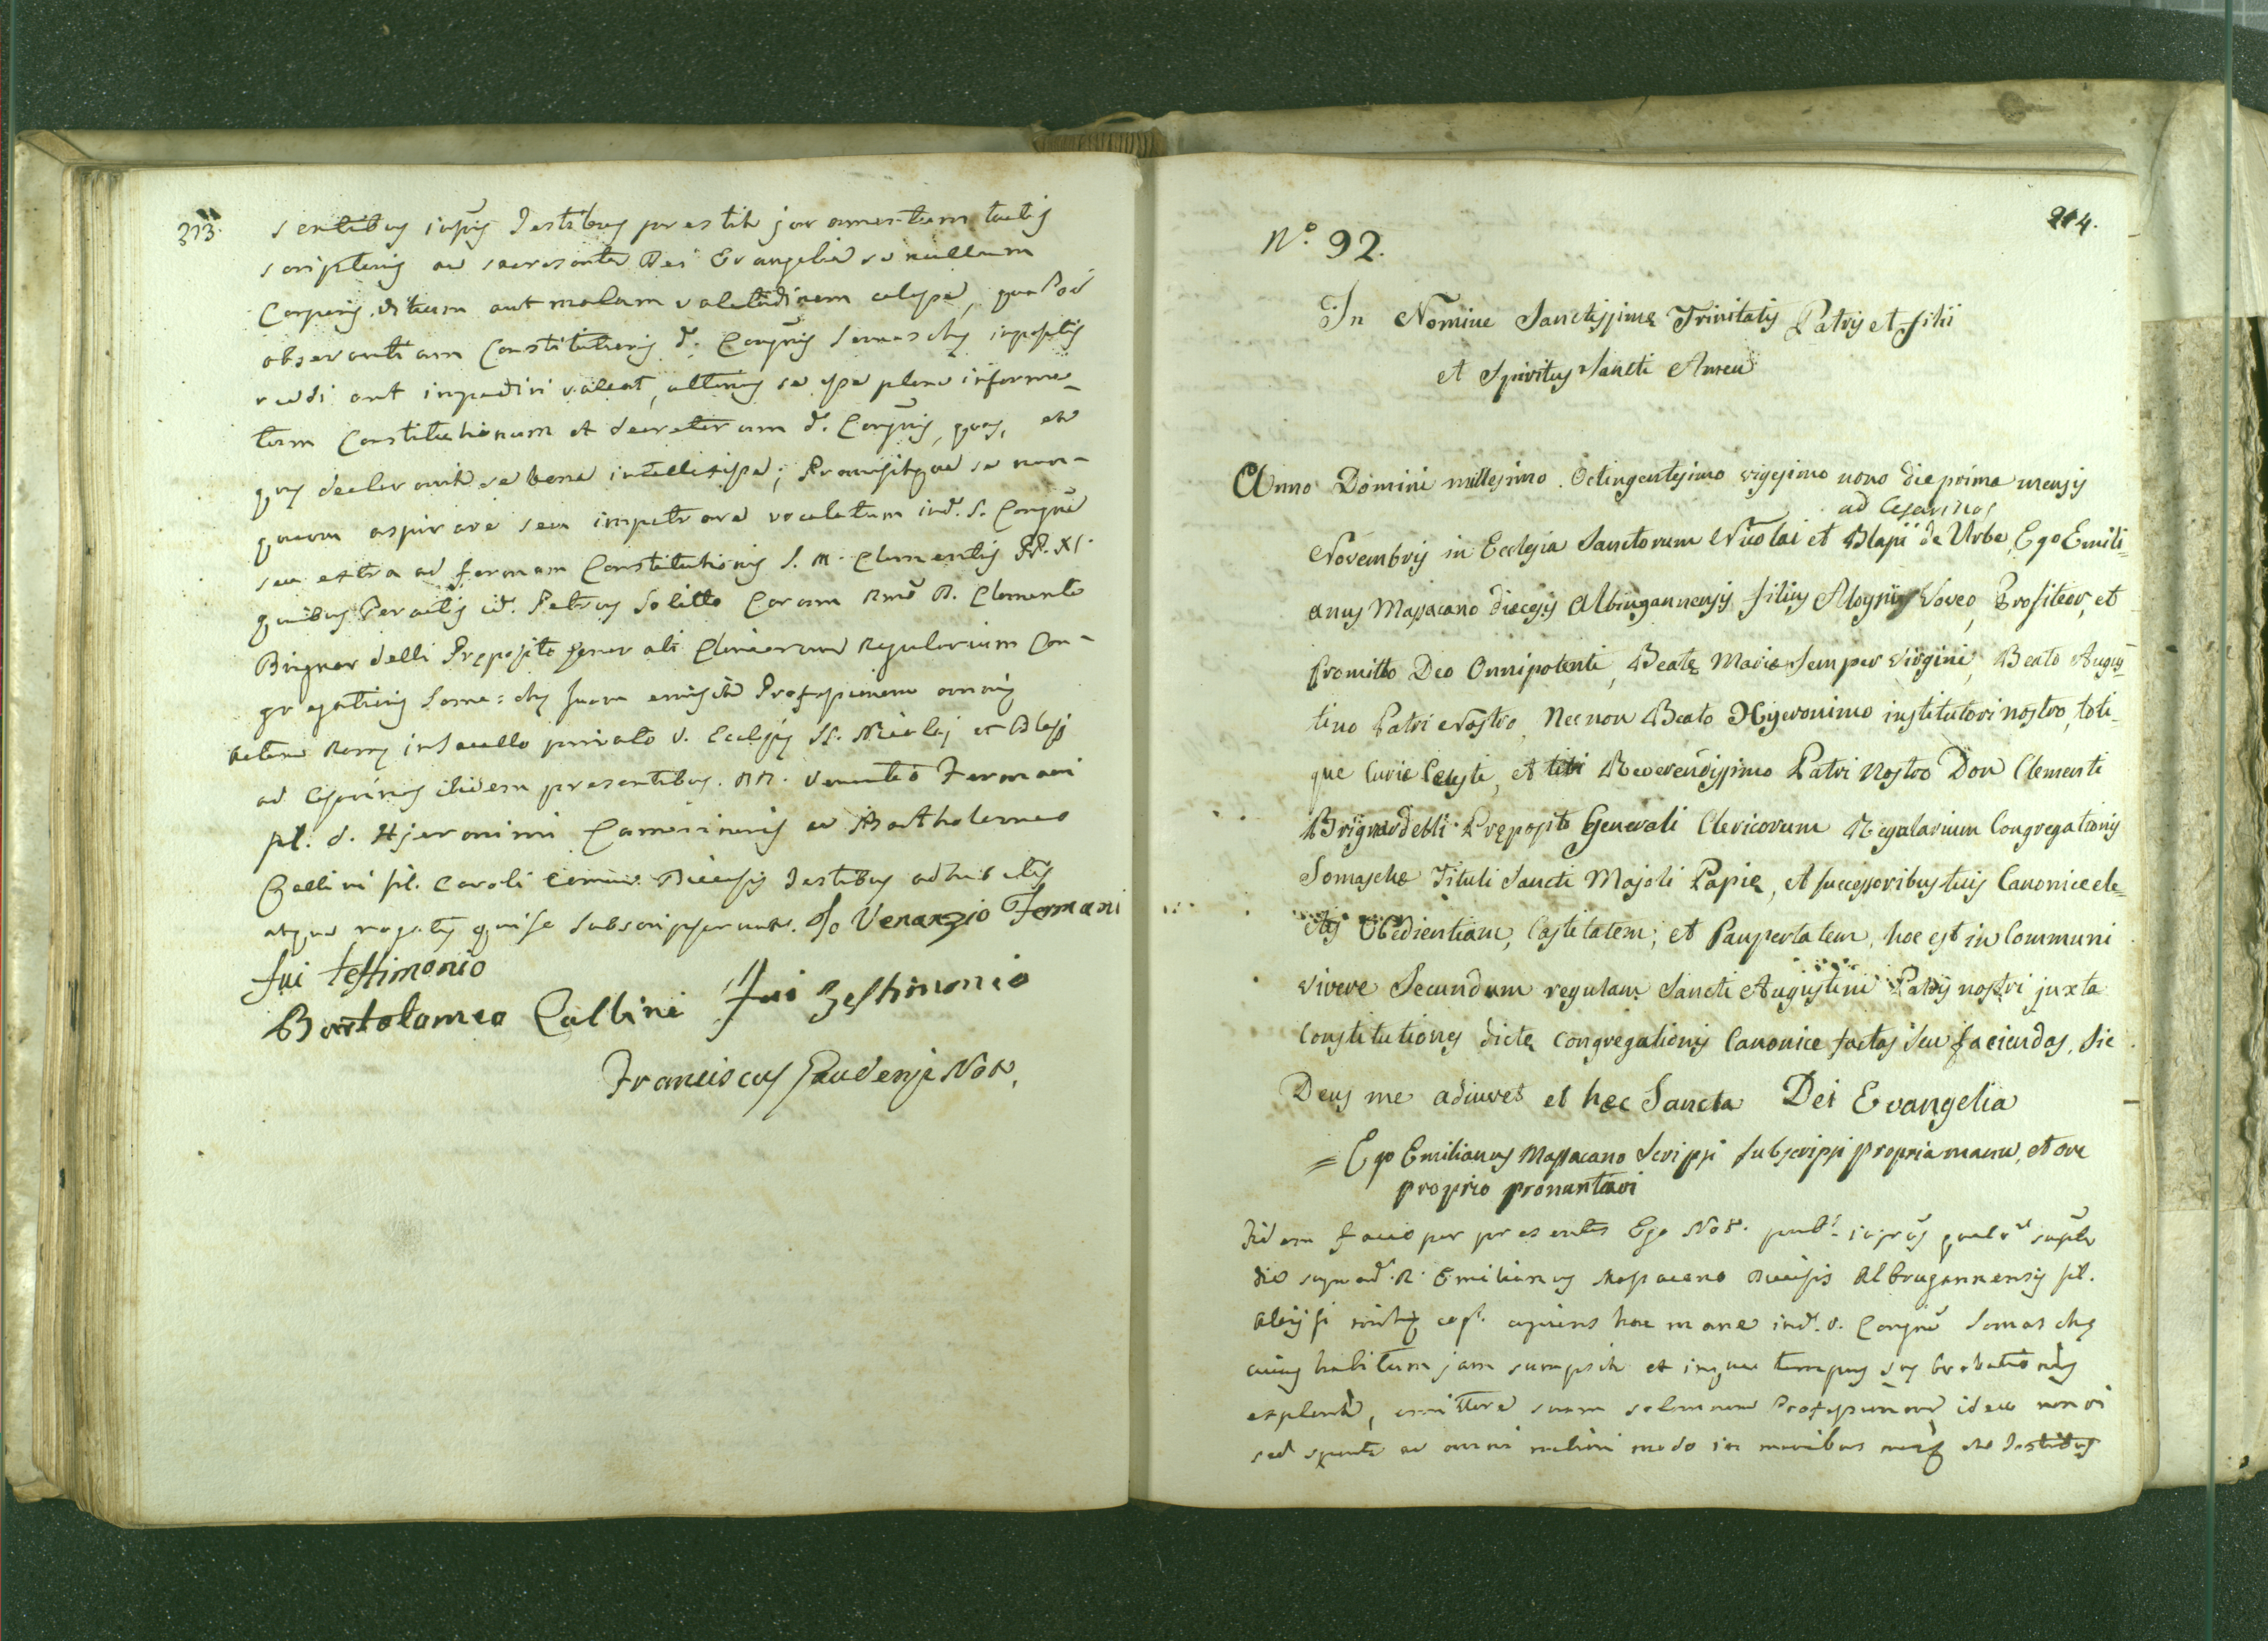 313.
sentibus infris Testibus prestitit juramentum tactis
scripturis ac sacrosanta Dei Evangelia se nullum
Corporis vitium aut malam valetudinem
observantiam Constitutionis d. Congnis Somaschę
aut impediri valeat, ulterius se esse plene informa-
tum Constitutionum et decretorum d. Congnis, quas, et
quę declaravit se bene intellexisse; Promisitque se nun-
quam aspirare seu impetrare vocaletum ind. S. Congne
seu extra ad formam Constitutionis S. M. Clementis PP. XI.
quibus Peractis id. Petrus Solitto Coram Rmo P. Clemente
Brignardelli Pręposito generali Clericorum Regularium Con-
gregationis Somaschę suam emisit Professionem
Actum Romę in Sacello privato V. Ecclesię SS. Nicolai et Blasij
ad Cesarinos ibidem presentibus. RR. Venantio Fermani
fil. d. Hjeronimi Camerinensis ac Bartholomeo
Callini fil. Caroli Diecesis Testibus adhibitis
atque rogatis qui se subscripserunt. Io Venanzio Fermani
fui testimonio
Bartolomeo Callini fui Testimonio
Franciscus Gaudenzi Not.
214.
N.° 92.
In Nomine Sanctissimę Trinitatis Patris et Filii
et Spiritus Sancti Amen
Anno Domini millesimo Octingentesimo vigesimo nono die prima mensis
ad Cesarinos
Novembris in Ecclesia Sanctorum Nicolai et Blasii de Urbe, Ego Emili=
anus Massacano diecesis Albingannensis filius Aloysii Voveo, Profiteor, et
Promitto Deo Omnipotenti, Beatę Marię Semper Virgini, Beato Augus=
tino Patri Nostro, Nec non Beato Hyeronimo institutori nostro, toti=
que Curię Celesti, et tibi Reverendissimo Patri Nostro Don Clementi
Brignardelli Pręposito Generali Clericorum Regularium Congregationis
Somaschę Tituli Sancti Majoli Papię, et successoribus tuis Canonice ele=
ctis Obedientiam, Castitatem, et Paupertatem, hoc est in Communi
vivere Secundum regulam Sancti Augustini Patris nostri juxta
Constitutiones dictę congregationis Canonice factas seu faciendas, Sic
Deus me adiuvet et hęc Sancta Dei Evangelia
= Ego Emilianus Massacano Scripsi subscripsi propria manu, et ore
proprio pronuntiavi
Fidem facio per presentes Ego Not. publ. infrus qualr supta
die R. Emilianus Massacano Diecesis Albingannensis fil.
Aloijsi cupiens hoc mane ind. V. Congne Somaschę
cuius habitum jam sumpsit et in qua tempus suę Probationis
explevit, emittere suam solemnem Professionem ideo non vi
sed sponte ac omni meliori modo in manibus mei et Testibus